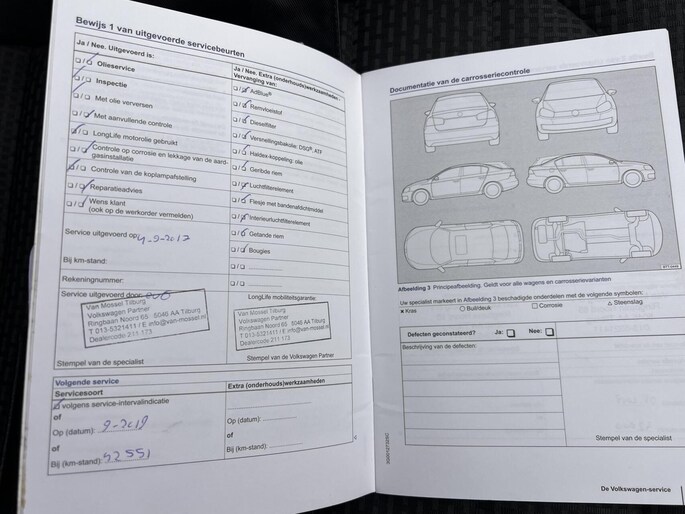 Bewijs 1 van uitgevoerde servicebeurten
Ja / Nee. Uitgevoerd is:
Olieservice
Inspectie
Met olie verversen
Met aanvullende controle
LongLife motorolie gebruikt
Controle op corrosie en lekkage van de aard-
gasinstallatie
Controle van de koplampafstelling
Reparatieadvies
Wens klant
(ook op de werkorder vermelden)
Service uitgevoerd op:
Bij km-stand:
Rekeningnummer:
Service uitgevoerd door:
Van Mossel Tilburg
Volkswagen Partner
Ringbaan Noord 65 5046 AA Tilburg
T 013-5321411 / E info@van-mossel.nl
Dealercode 211 173
Stempel van de specialist
Ja / Nee. Extra (onderhouds)werkzaamheden:
Vervanging van:
AdBlue®
Remvloeistof
Dieselfilter
Versnellingsbakolie: DSG®, ATF
Haldex-koppeling: olie
Geribde riem
Luchtfilterelement
Flesje met bandenafdichtmiddel
Interieurluchtfilterelement
Getande riem
Bougies
LongLife mobiliteitsgarantie:
Van Mossel Tilburg
Volkswagen Partner
Ringbaan Noord 65 5046 AA Tilburg
T 013-5321411 / E info@van-mossel.nl
Dealercode 211 173
Stempel van de Volkswagen Partner
Volgende service
Servicesoort
volgens service-intervalindicatie
of
Op (datum): 9-2019
of
Bij (km-stand): 52551
Extra (onderhouds)werkzaamheden
Op (datum):
of
Bij (km-stand):
Documentatie van de carrosseriecontrole
Afbeelding 3 Principeafbeelding. Geldt voor alle wagens en carrosserievarianten
Uw specialist markeert in Afbeelding 3 beschadigde onderdelen met de volgende symbolen:
× Kras ○ Buil/deuk □ Corrosie △ Steenslag
Defecten geconstateerd? Ja: Nee:
Beschrijving van de defecten:
Stempel van de specialist
De Volkswagen-service